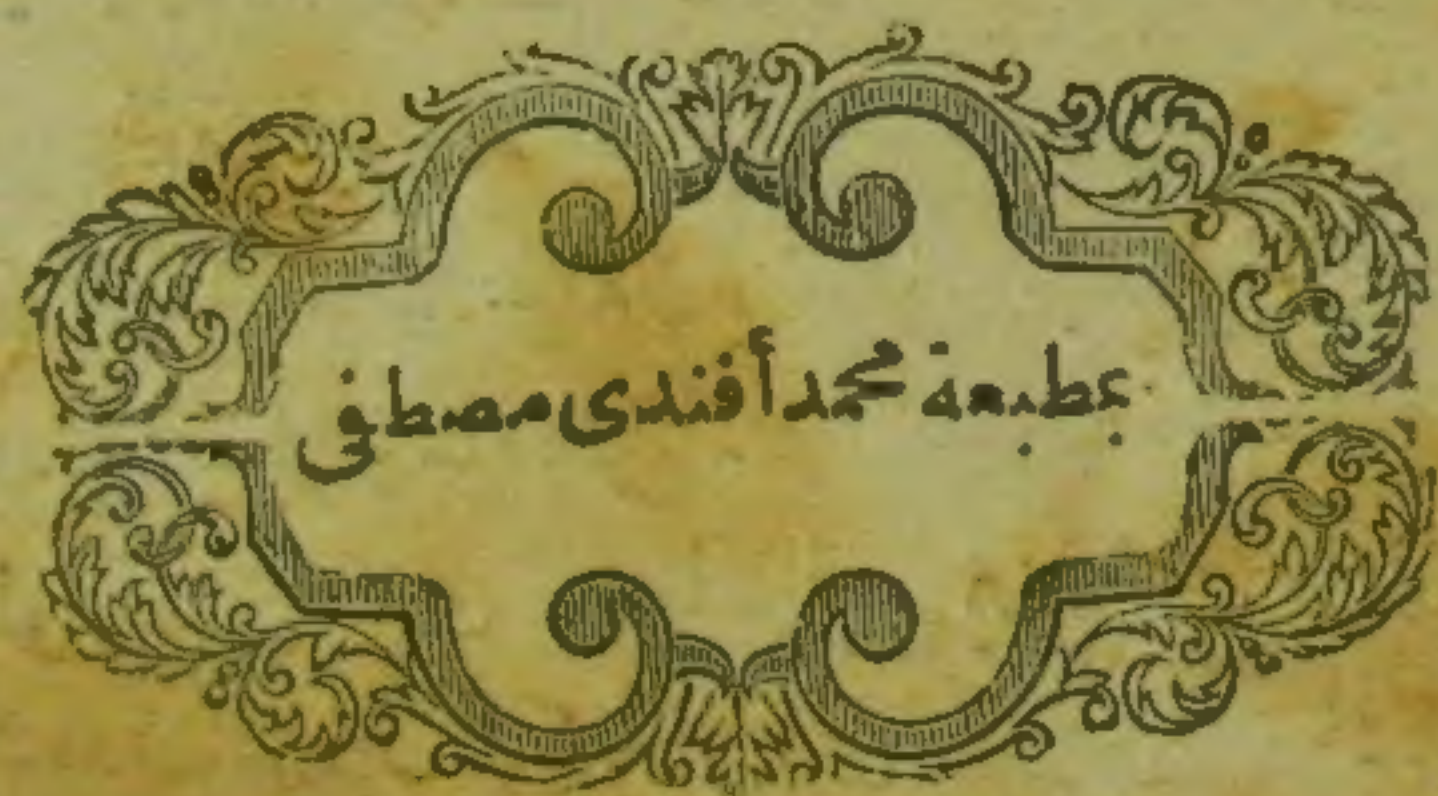 بمطبعة محمد أفندى مصطفى